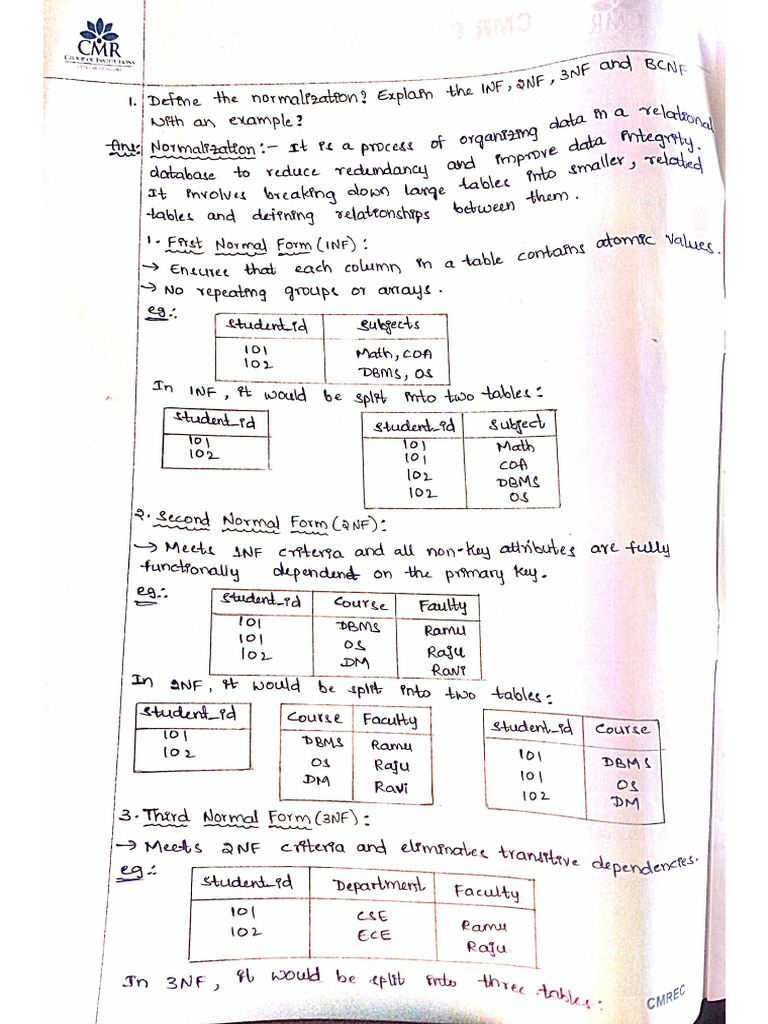 CMR
GROUP OF INSTITUTIONS
1. Define the normalization? Explain the 1NF, 2NF, 3NF and BCNF
with an example?
Ans: Normalization:- It is a process of organizing data in a relational
database to reduce redundancy and improve data integrity.
It involves breaking down large tables into smaller, related
tables and defining relationships between them.
1. First Normal Form (1NF):
→ Ensures that each column in a table contains atomic values.
→ No repeating groups or arrays.
eg:
student_id Subjects
101 Math, COA
102 DBMS, OS
In 1NF, it would be split into two tables:
student_id student_id Subject
101 101 Math
102 101 COA
102 DBMS
102 OS
2. Second Normal Form (2NF):
→ Meets 1NF criteria and all non-key attributes are fully
functionally dependent on the primary key.
eg:
student_id Course Faulty
101 DBMS Ramu
101 OS Raju
102 DM Ravi
In 2NF, it would be split into two tables:
student_id Course Faculty student_id Course
101 DBMS Ramu 101 DBMS
102 OS Raju 101 OS
DM Ravi 102 DM
3. Third Normal Form (3NF):
→ Meets 2NF criteria and eliminates transitive dependencies.
eg:
student_id Department Faculty
101 CSE Ramu
102 ECE Raju
In 3NF, it would be split into three tables:
CMREC